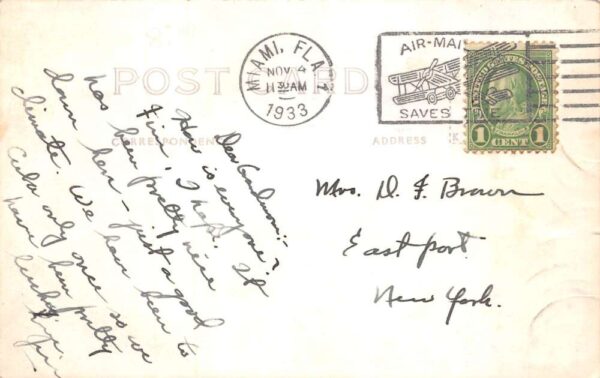 MIAMI, FLA.
NOV 4
11 30 AM
1933
AIR-MAIL
SAVES
POST CARD
CORRESPONDENCE
ADDRESS
1 CENT 1
Dear
How is everyone?
Fine, I hope. It
has been pretty nice
down here - just a good
climate. We have been to
Cuba only once so we
have been pretty
lucky.
Mrs. D. F. Brown
Eastport
New York.